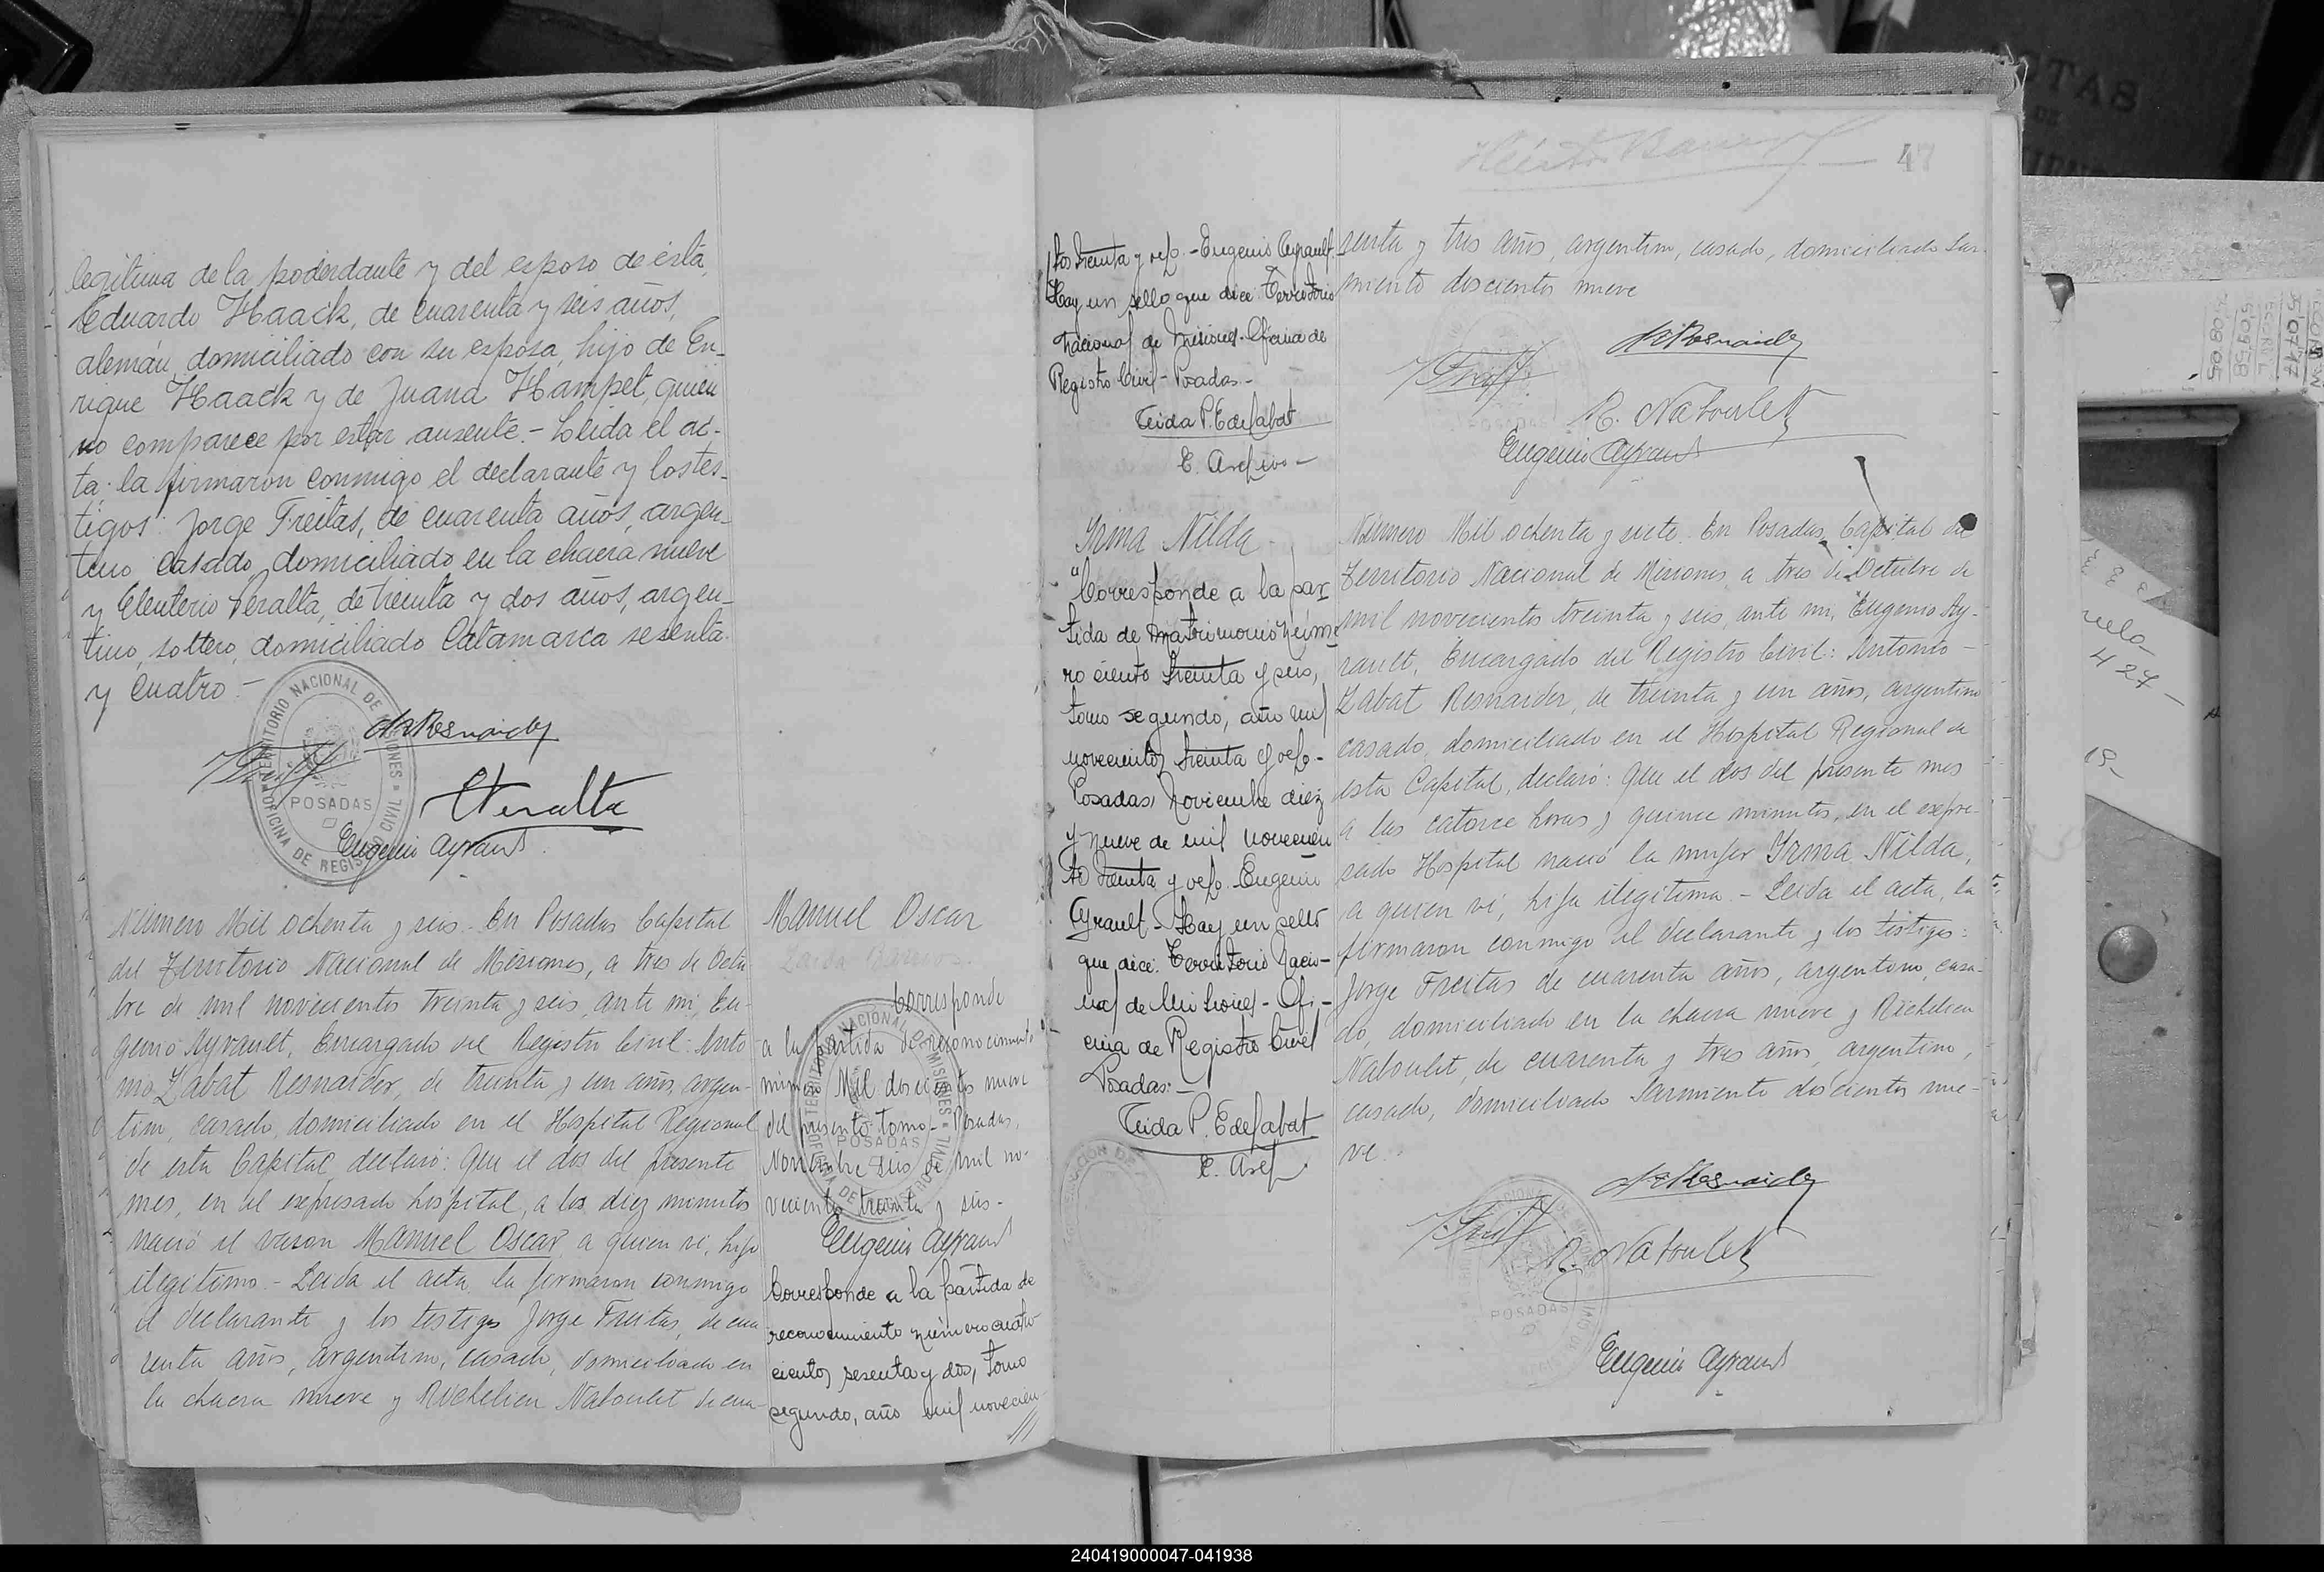 legítima de la poderdante y del esposo de ésta,
Eduardo Haack, de cuarenta y seis años,
alemán, domiciliado con su esposa, hijo de En-
rique Haack y de Juana Hampel, quien
no comparece por estar ausente.- Leida el ac-
ta, la firmaron conmigo el declarante y los tes-
tigos: Jorge Freitas, de cuarenta años, argen-
tino casado, domiciliado en la chacra nueve
y Eleuterio Peralta, de treinta y dos años, argen-
tino, soltero, domiciliado Catamarca sesenta
y cuatro.-
TERRITORIO NACIONAL DE MISIONES
OFICINA DE REGISTRO CIVIL
POSADAS
EPeralta
Eugenio Ayrault
Número Mil ochenta y seis.- En Posadas Capital
del Territorio Nacional de Misiones, a tres de Octu
bre de mil novecientos treinta y seis, ante mi, Eu-
genio Ayrault, Encargado del Registro Civil: Anto
nio Zabat Resnaider, de treinta y un años, argen-
tino, casado, domiciliado en el Hospital Regional
de esta Capital, declaró: Que el dos del presente
mes, en el expresado hospital, a los diez minutos
nació el varon Manuel Oscar, a quien vi, hijo
ilegitimo.- Leida el acta, la firmaron conmigo
el declarante y los testigos Jorge Freitas, de cua
renta años, argentino, casado, domiciliado en
la chacra nueve y Richelieu Naboulet de cua-
Manuel Oscar
Corresponde
a la partida de reconocimiento
número Mil doscientos nueve
del presente tomo.- Posadas,
Noviembre seis de mil no-
vecientos treinta y seis.-
Eugenio Ayrault
Corresponde a la partida de
reconocimiento número cuatro
cientos sesenta y dos, tomo
segundo, año mil novecien
///
47
/tos treinta y ocho.- Eugenio Ayrault.-
Hay un sello que dice: Territorio
Nacional de Misiones. Oficina de
Registro Civil - Posadas.-
E. Archivo-
renta y tres años, argentino, casado, domiciliado Sar-
miento doscientos nueve
R. Naboulet
Eugenio Ayrault
Irma Nilda.-
"Corresponde a la par
tida de matrimonio núme
ro ciento treinta y seis,
tomo segundo, año mil
novecientos treinta y ocho.-
Posadas, noviembre diez
y nueve de mil novecien
tos treinta y ocho. Eugenio
Ayrault - Hay un sello
que dice: Territorio Nacio-
nal de Misiones - Ofi-
cina de Registro Civil
Posadas:-
E. Arch.
Número Mil ochenta y siete. En Posadas, Capital del
Territorio Nacional de Misiones, a tres de Octubre de
mil novecientos treinta y seis, ante mi, Eugenio Ay-
rault, Encargado del Registro Civil: Antonio -
Zabat Resnaider, de treinta y un años, argentino
casado, domiciliado en el Hospital Regional de
esta Capital, declaró: Que el dos del presente mes
a las catorce horas y quince minutos, en el expre-
sado Hospital nació la mujer Irma Nilda,
a quien vi, hija ilegitima.- Leida el acta, la
firmaron conmigo el declarante y los testigos:
Jorge Freitas de cuarenta años, argentino, casa-
do, domiciliado en la chacra nueve y Richelieu
Naboulet, de cuarenta y tres años, argentino,
casado, domiciliado Sarmiento doscientos nue-
ve.
R. Naboulet
POSADAS
Eugenio Ayrault
240419000047-041938